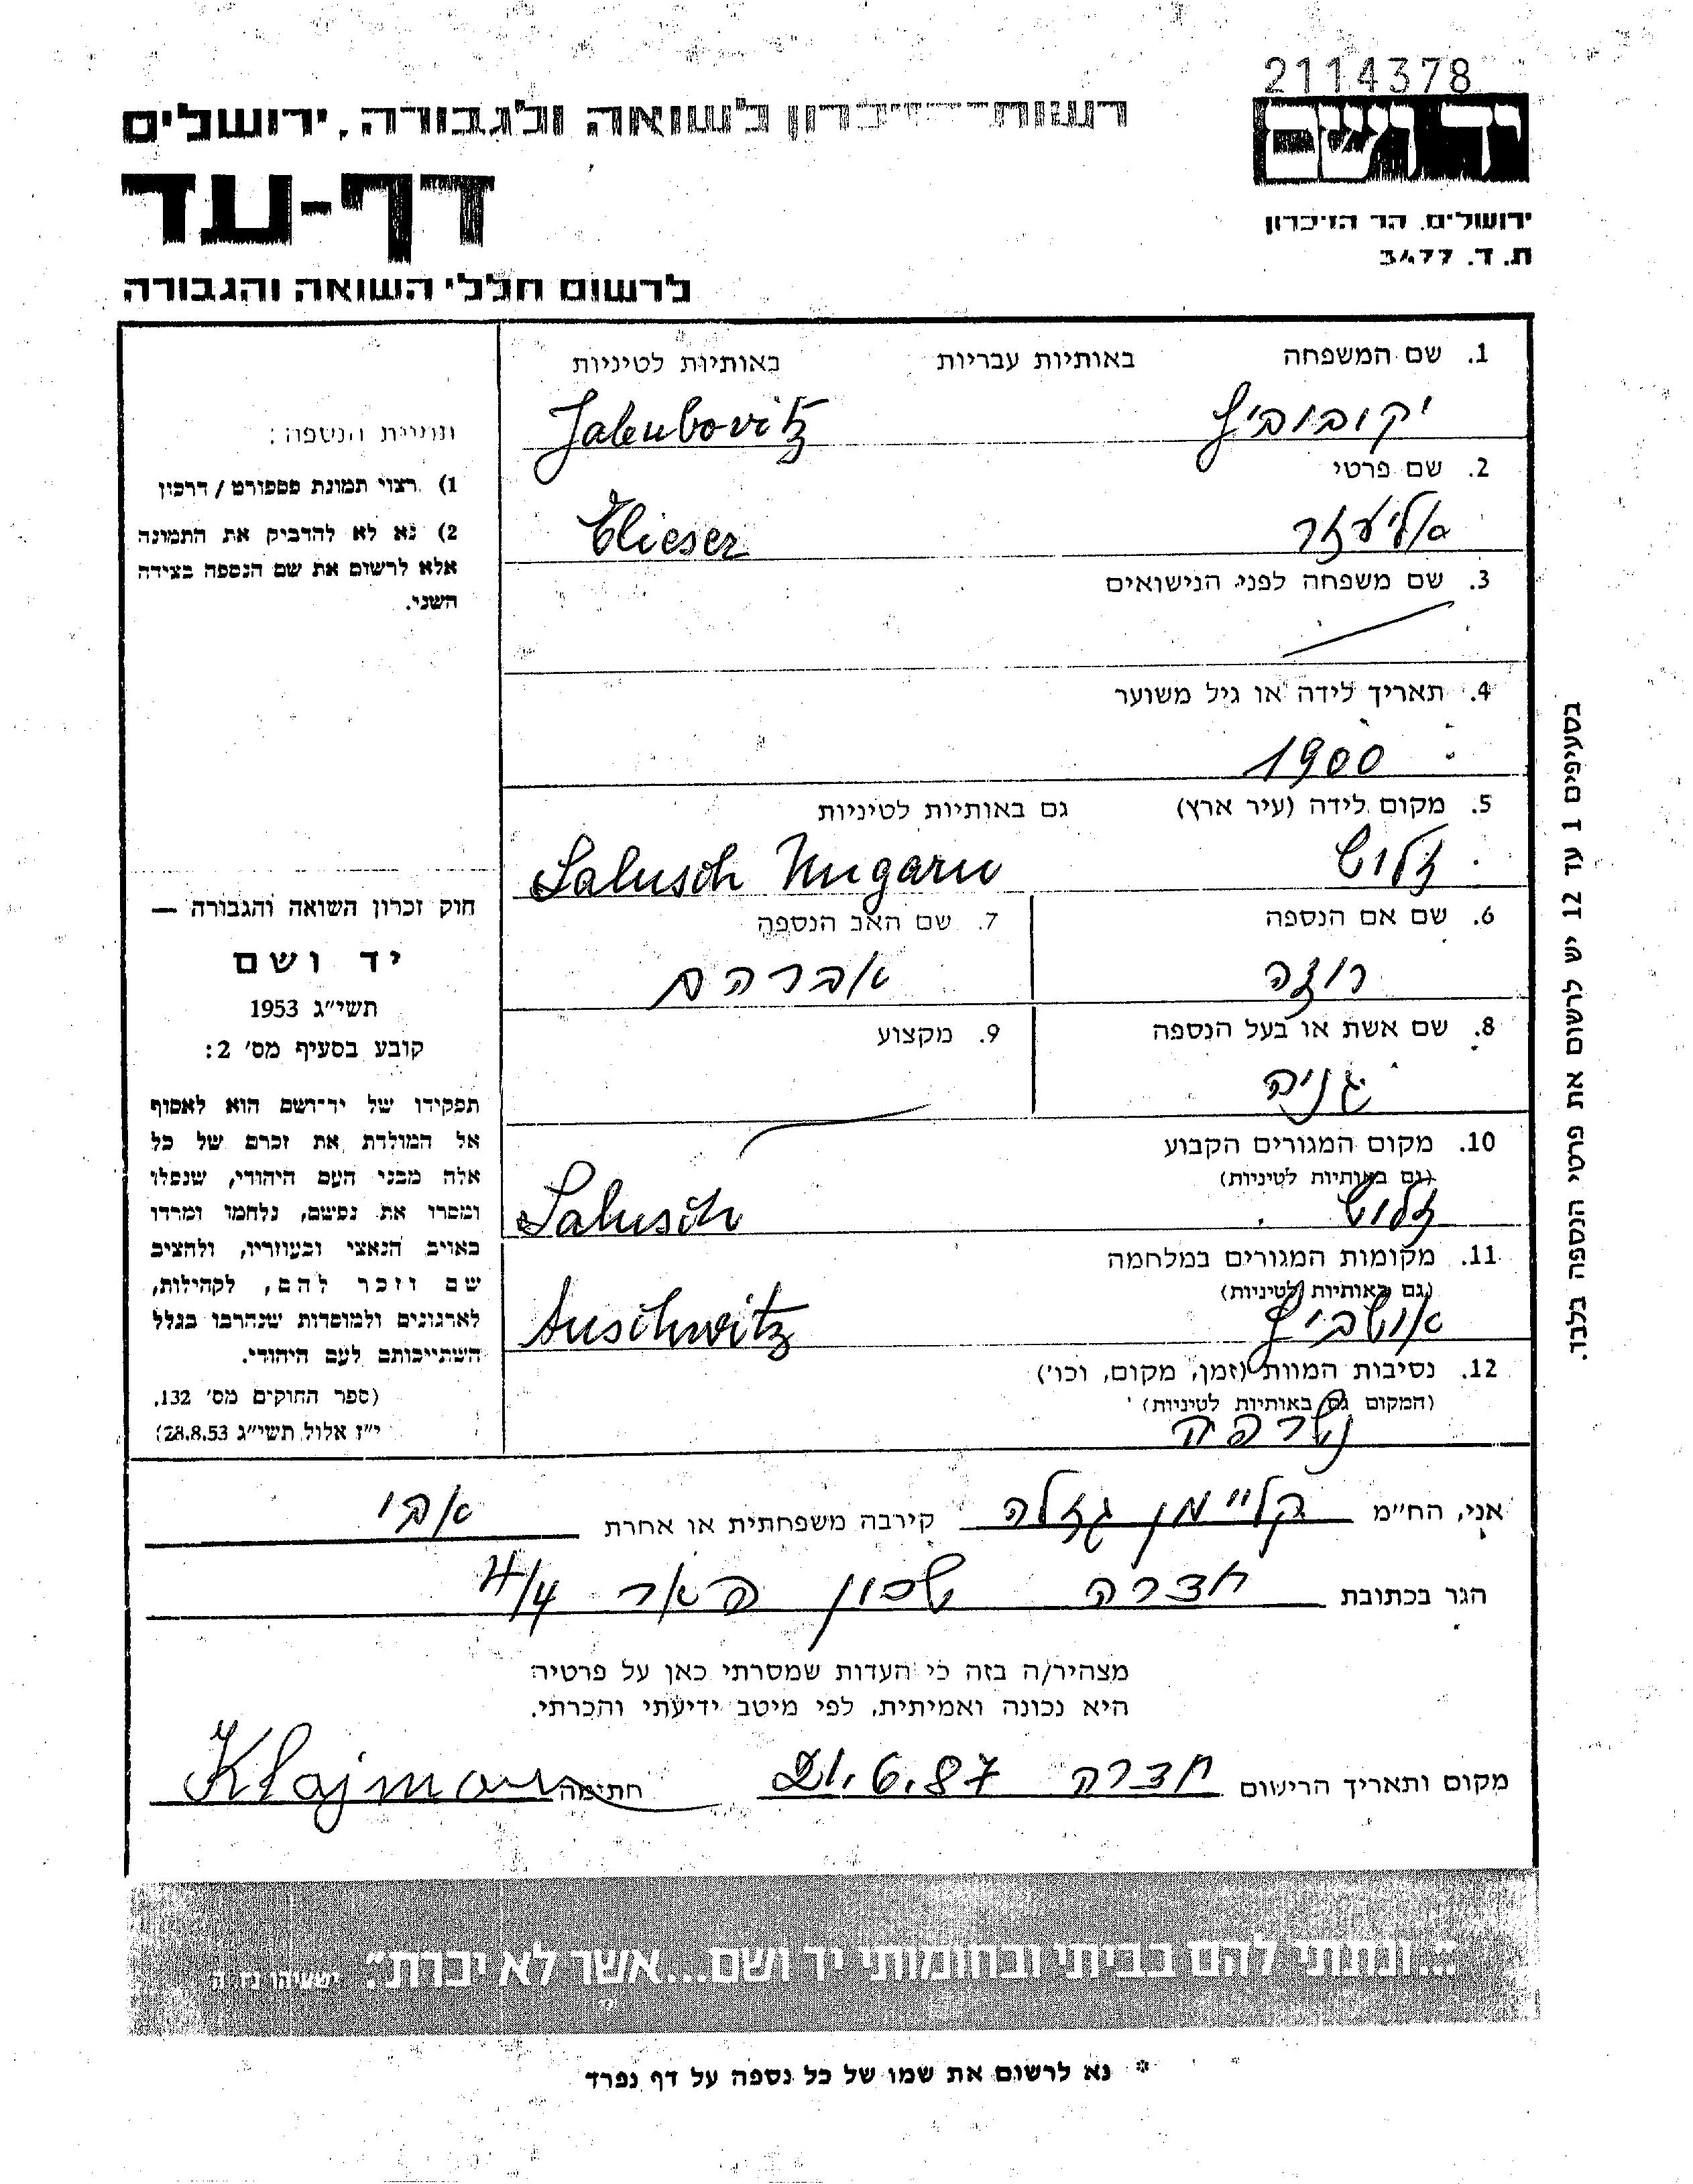 2114378
יד ושם
ירושלים, הר הזיכרון
ת. ד. 3477
רשות הזיכרון לשואה ולגבורה, ירושלים
דף-עד
לרשום חללי השואה והגבורה
1. שם המשפחה באותיות עבריות באותיות לטיניות
יקובוביץ Jakubovitz
2. שם פרטי
אליעזר Elieser
3. שם משפחה לפני הנישואים
4. תאריך לידה או גיל משוער
1900
5. מקום לידה (עיר ארץ) גם באותיות לטיניות
זלוש Salusch
6. שם אם הנספה 7. שם האב הנספה
רוזה אברהם
8. שם אשת או בעל הנספה 9. מקצוע
גניה
10. מקום המגורים הקבוע
(גם באותיות לטיניות)
זלוש Salusch
11. מקומות המגורים במלחמה
(גם באותיות לטיניות)
אושביץ Auschwitz
12. נסיבות המוות (זמן, מקום, וכו')
(המקום גם באותיות לטיניות)
נשרפה
תמונת הנספה:
1) רצוי תמונת פספורט / דרכון
2) נא לא להדביק את התמונה
אלא לרשום את שם הנספה בצידה
השני.
חוק זכרון השואה והגבורה —
יד ושם
תשי״ג 1953
קובע בסעיף מס' 2:
תפקידו של יד־ושם הוא לאסוף
אל המולדת את זכרם של כל
אלה מבני העם היהודי, שנפלו
ומסרו את נפשם, נלחמו ומרדו
באויב הנאצי ובעוזריו, ולהציב
שם וזכר להם, לקהילות,
לארגונים ולמוסדות שנחרבו בגלל
השתייכותם לעם היהודי.
(ספר החוקים מס' 132,
י״ז אלול תשי״ג 28.8.53)
בסעיפים 1 עד 12 יש לרשום את פרטי הנספה בלבד.
אני, הח״מ קליימן גזלה קירבה משפחתית או אחרת אבי
הגר בכתובת חדרה שכון פאר 4/4
מצהיר/ה בזה כי העדות שמסרתי כאן על פרטיה
היא נכונה ואמיתית, לפי מיטב ידיעתי והכרתי.
מקום ותאריך הרישום חדרה 21.6.87 חתימה Klajman
״...ונתתי להם בביתי ובחומותי יד ושם...אשר לא יכרת״. ישעיהו נו, ה
* נא לרשום את שמו של כל נספה על דף נפרד